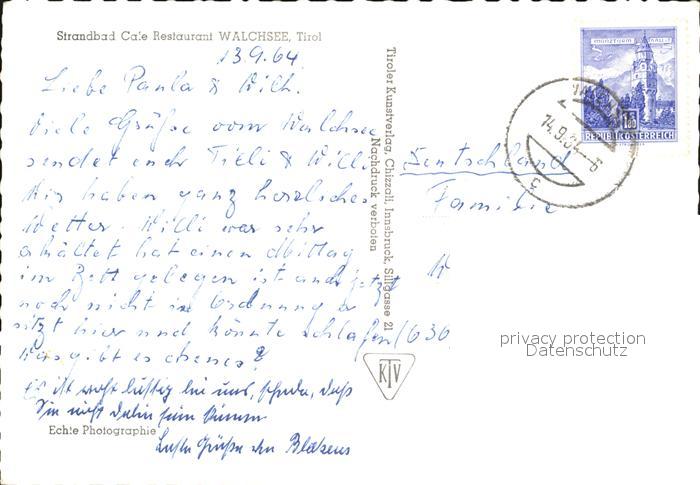 Strandbad Cafe Restaurant WALCHSEE, Tirol
13.9.64
Liebe Paula & Willi.
Viele Grüße vom Walchsee
sendet euch Tilli & Willi
Wir haben ganz herrliches
Wetter. Willi war sehr
erkältet hat einen Mittag
im Bett gelegen ist auch jetzt
noch nicht in Ordnung er
sitzt hier und könnte schlafen
Was gibt es
Es ist recht lustig bei uns, schade, daß
Sie nicht dabei sein können
Echte Photographie
Tiroler Kunstverlag Chizzali, Innsbruck, Sillgasse 21
Nachdruck verboten
KTV
MÜNZTURM HALL
1.80
REPUBLIK ÖSTERREICH
14.9.64
b
Deutschland
Familie
privacy protection
Datenschutz